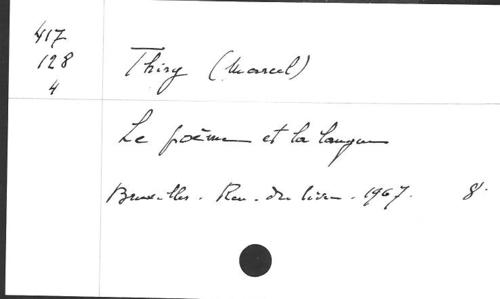 417
128
4
Thiry (Marcel)
Le poème et la langue
Bruxelles. Ren. du livre. 1967. 8°